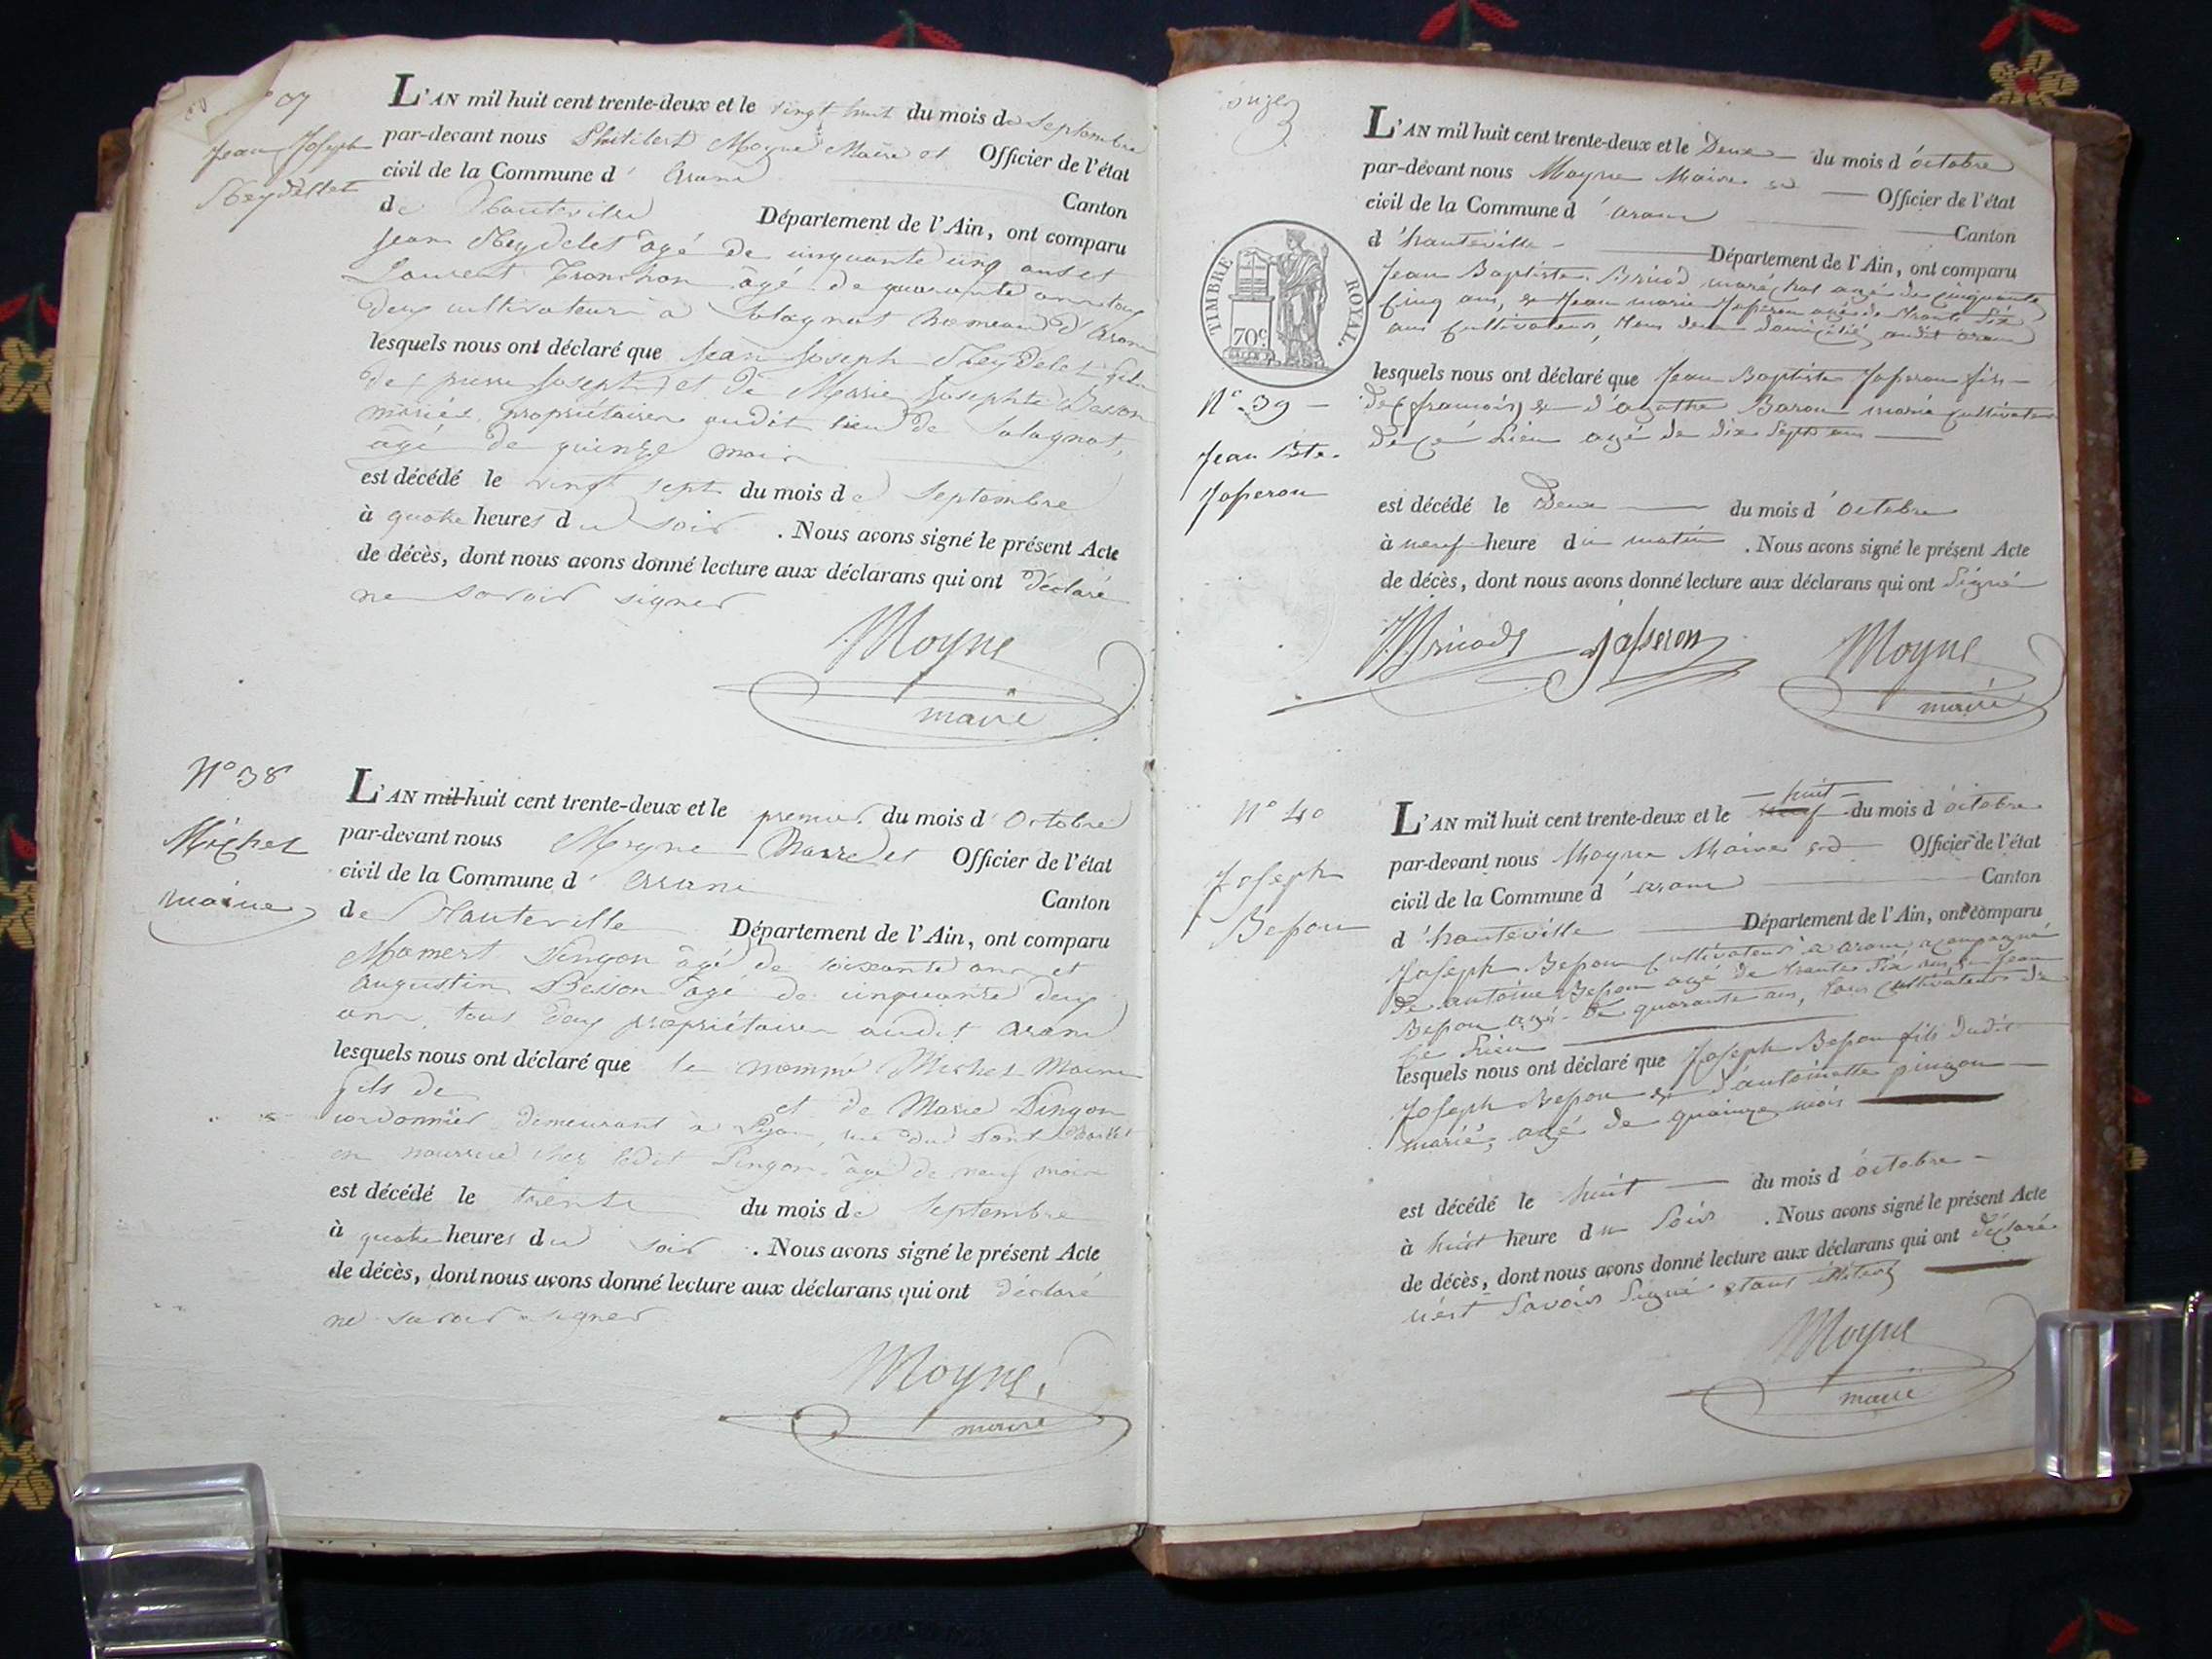 Jean Joseph
L'AN mil huit cent trente-deux et le vingt huit du mois de Septembre
par-devant nous Philibert Moyne Maire et Officier de l'état
civil de la Commune d' Aranc
Canton
de hauteville Département de l'Ain, ont comparu
Jean âgé de cinquante cinq ans et
Laurent Tronchon âgé de quarante ans tous
deux cultivateurs à Solagnat hameau d'Aranc
lesquels nous ont déclaré que Jean Joseph fils
de pierre Joseph et de Marie Josephte Besson
mariés propriétaires audit lieu de Solagnat,
âgé de quinze mois
est décédé le vingt sept du mois de Septembre
à quatre heures du soir . Nous avons signé le présent Acte
de décès, dont nous avons donné lecture aux déclarans qui ont déclaré
ne savoir signer
Moyne
maire
N° 38
Michel
Moine
L'AN mil huit cent trente-deux et le premier du mois d' Octobre
par-devant nous Moyne Maire et Officier de l'état
civil de la Commune d' Aranc
Canton
de Hauteville Département de l'Ain, ont comparu
Mamert Pingon âgé de soixante ans et
Augustin Besson âgé de cinquante deux
ans, tous deux propriétaires audit Aranc
lesquels nous ont déclaré que le nommé Michel Moine
fils de
et de Marie Pingon
cordonnier demeurant à Lyon, rue du
en nourrice chez ledit Pingon, âgé de neuf mois
est décédé le trente du mois de Septembre
à quatre heures du soir . Nous avons signé le présent Acte
de décès, dont nous avons donné lecture aux déclarans qui ont déclaré
ne savoir signer
Moyne
maire
TIMBRE ROYAL.
70c.
N° 39
Jean Bte.
Josseron
L'AN mil huit cent trente-deux et le Deux du mois d'octobre
par-devant nous Moyne Maire et Officier de l'état
civil de la Commune d'aranc
Canton
d'hauteville Département de l'Ain, ont comparu
Jean Baptiste Bricod maréchal agé de cinquante
cinq ans, et Jean marie Josseron agé de trente six
ans cultivateur, tous deux domiciliés audit aranc
lesquels nous ont déclaré que Jean Baptiste Josseron fils
de françois et d'agathe Baron marié cultivateur
de ce lieu agé de dix sept ans
est décédé le Deux du mois d'octobre
à neuf heure du matin . Nous avons signé le présent Acte
de décès, dont nous avons donné lecture aux déclarans qui ont signé
Bricod Josseron Moyne
maire
N° 40
Joseph
Besson
huit
L'AN mil huit cent trente-deux et le neuf du mois d'octobre
par-devant nous Moyne Maire et Officier de l'état
civil de la Commune d'aranc
Canton
d'hauteville Département de l'Ain, ont comparu
Joseph Besson cultivateur a aranc acompagné
de antoine Besson agé de trante six ans, et Jean
Besson agé de quarante ans, tous cultivateurs de
ce lieu
lesquels nous ont déclaré que Joseph Besson fils dudit
Joseph Besson et d'antoinette pingon
mariés, agé de quainze mois
est décédé le huit du mois d'octobre
à huit heure du soir . Nous avons signé le présent Acte
de décès, dont nous avons donné lecture aux déclarans qui ont déclaré
savoir signé
Moyne
maire